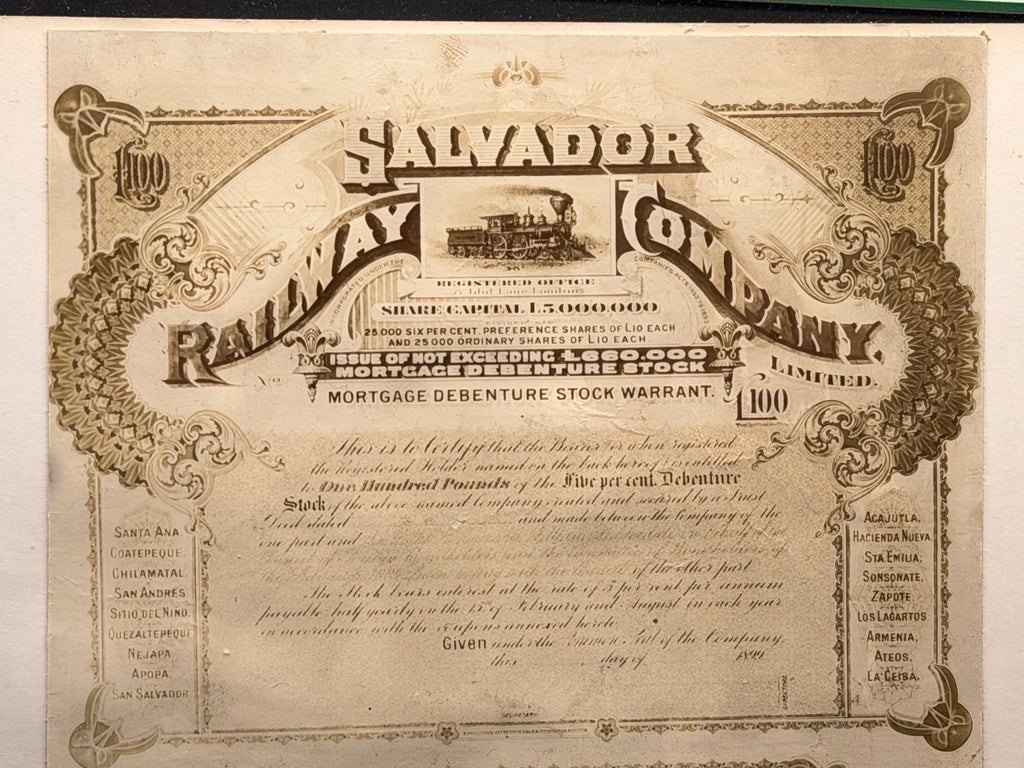 £100
£100
SALVADOR
RAILWAY COMPANY,
LIMITED.
INCORPORATED UNDER THE
COMPANIES ACTS
REGISTERED OFFICE
SHARE CAPITAL £5,000,000
25,000 SIX PER CENT. PREFERENCE SHARES OF £10 EACH
AND 25,000 ORDINARY SHARES OF £10 EACH.
ISSUE OF NOT EXCEEDING £660,000
MORTGAGE DEBENTURE STOCK
No
MORTGAGE DEBENTURE STOCK WARRANT.
£100
This is to Certify that the Bearer or when registered
the Registered Holder named on the back hereof is entitled
to One Hundred Pounds of the Five per cent. Debenture
Stock of the above named Company created and secured by a Trust
Deed dated and made between the Company of the
one part and
of the other part.
The Stock bears interest at the rate of 5 per cent per annum
payable half yearly on the 15th of February and August in each year
in accordance with the coupons annexed hereto.
Given under the Common Seal of the Company,
this day of 189
SANTA ANA
COATEPEQUE.
CHILAMATAL.
SAN ANDRES
SITIO DEL NINO,
QUEZALTEPEQUE
NEJAPA,
APOPA,
SAN SALVADOR
ACAJUTLA,
HACIENDA NUEVA
STA. EMILIA,
SONSONATE,
ZAPOTE,
LOS LAGARTOS
ARMENIA,
ATEOS,
LA CEIBA,